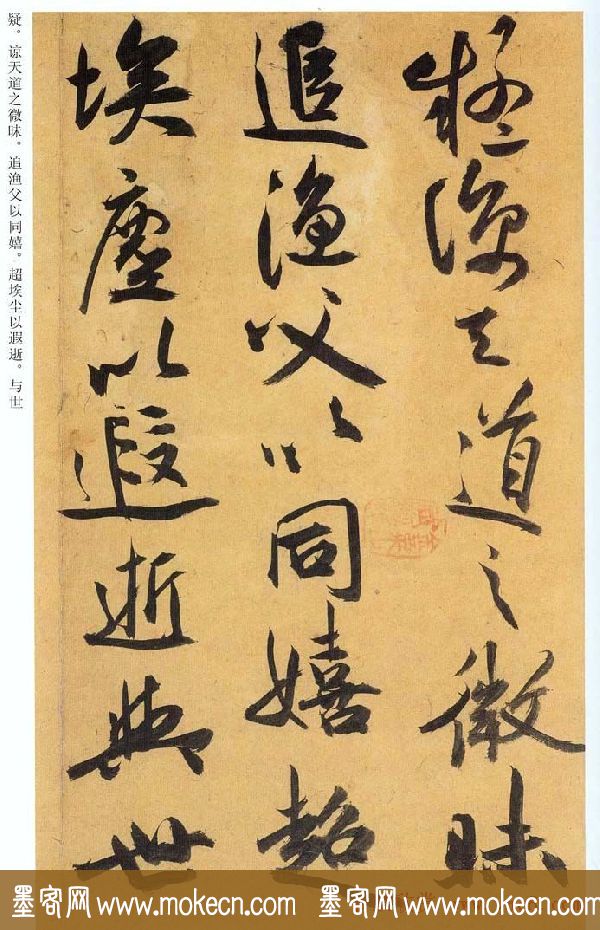 疑諒天道之微昧
追漁父以同嬉超
埃塵以遐逝與世
疑。谅天道之微昧。追渔父以同嬉。超埃尘以遐逝。与世
墨客网 www.mokecn.com 墨客网 www.mokecn.com